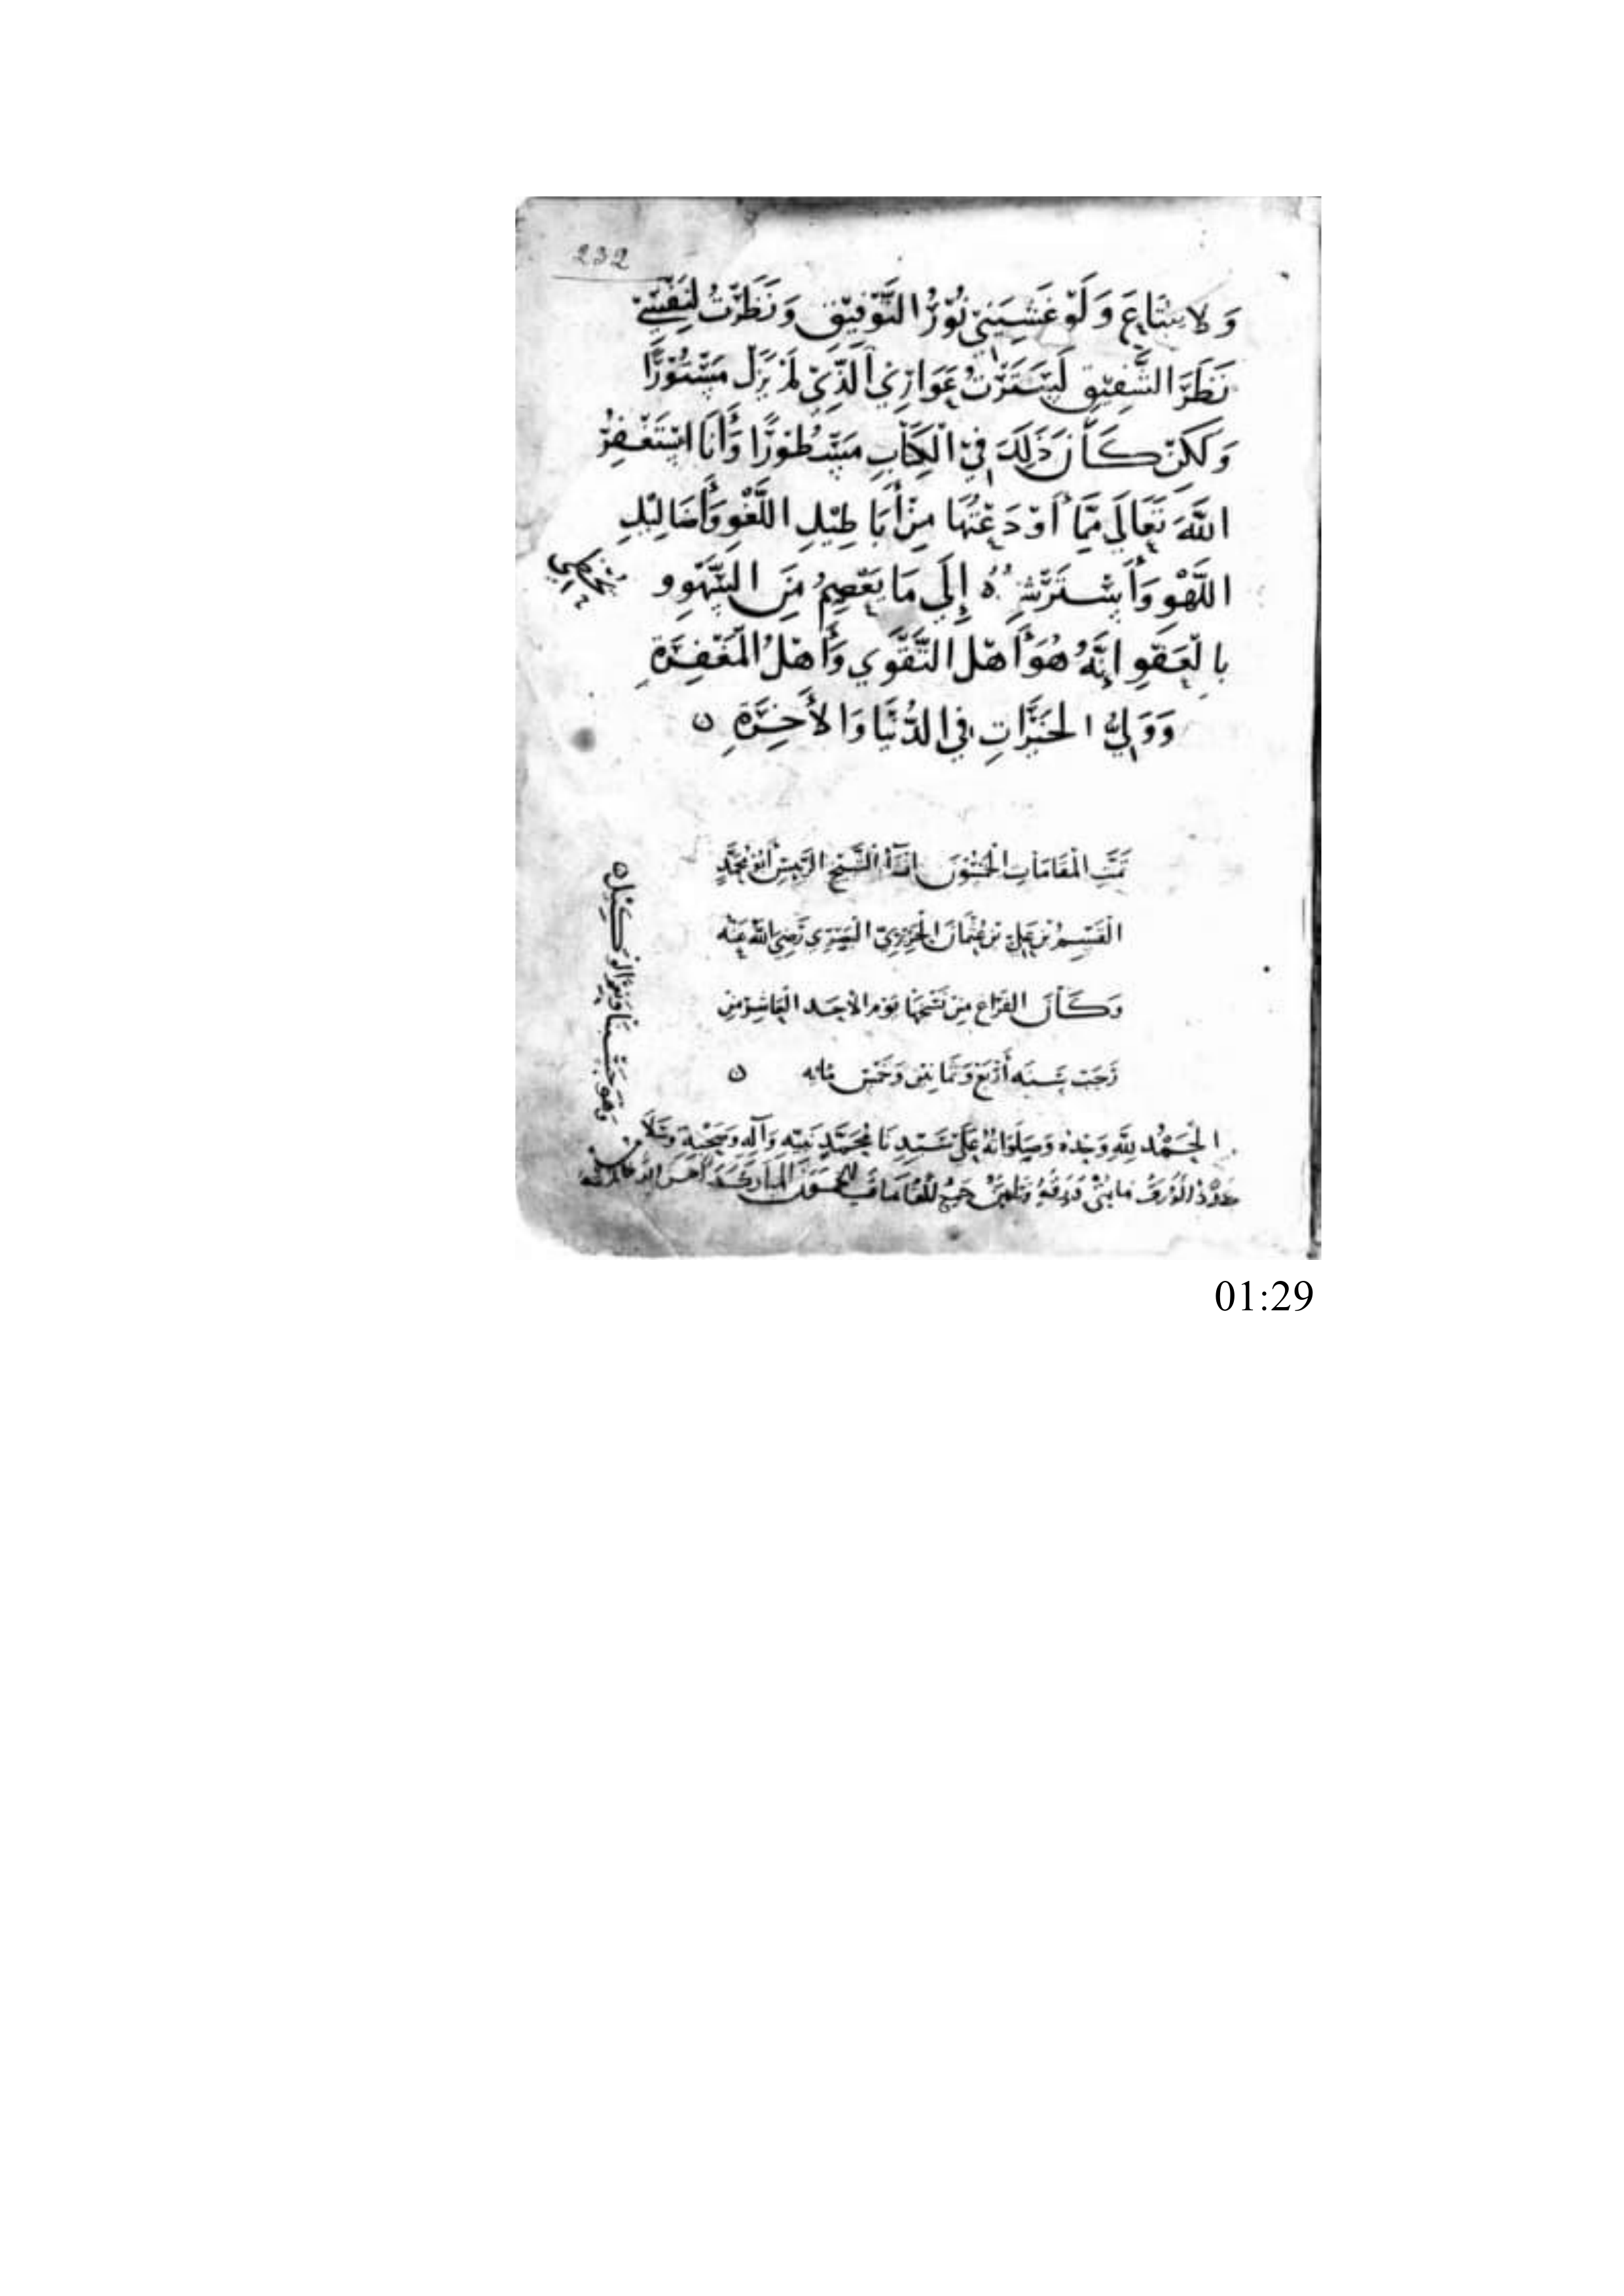 232
وَلا يُبْتَاعَ وَلَوْ غَشِيَنِيْ نُوْرُ التَّوْفِيْقِ وَنَظَرْتُ لِنَفْسِيْ
نَظَرَ الشَّفِيْقِ لَسَتَرْتُ عَوَارِيْ الَّذِيْ لَمْ يَزَلْ مَسْتُوْرًا
وَلَكِنْ كَانَ ذَلِكَ فِيْ الْكِتَابِ مَسْطُوْرًا وَأَنَا اسْتَغْفِرُ
اللَّهَ تَعَالَى مِمَّا أَوْدَعْتُهَا مِنْ أَبَاطِيْلِ اللَّغْوِ وَأَضَالِيْلِ
اللَّهْوِ وَأَسْتَرْشِدُهُ إِلَى مَا يَعْصِمُ مِنَ السَّهْوِ وَ
يُحْظِي
بِالْعَفْوِ إِنَّهُ هُوَ أَهْلُ التَّقْوَي وَأَهْلُ الْمَغْفِرَةِ
وَوَلِيُّ الْخَيْرَاتِ فِي الدُّنْيَا وَالأَخِرَةِ ۞
تَمَّتِ الْمَقَامَاتُ الْخَمْسُوْنَ إِنْشَاءُ الشَّيْخِ الرَّئِيْسِ أَبِيْ مُحَمَّدٍ
الْقَسِمِ بْنِ عَلِيِّ بْنِ عُثْمَانَ الْحَرِيْرِيِّ الْبَصْرِي رَضِيَ اللَّهُ عَنْهُ
وَكَانَ الفَرَاغ مِنْ نَسْخِهَا يَوْم الأَحَد العَاشِرْ مِنْ
رَجَب سَنَه أَرْبَعْ وَثَمَانِيْنَ وَخَمْسْ مِائه ۞
الْحَمْدُ لِلَّهِ وَحْدَهُ وَصَلَوَاتُهُ عَلَى سَيِّدِنَا مُحَمَّدٍ نَبِيِّهِ وَآلِهِ وَصَحْبِهِ وَسَلَامه
الْوَرَقْ مايتى وَرَقَهْ جَمِيْعْ الْمَقَامَات الْخَمْسُوْنَ الْمُبَارَكَه
وَهُوَ حَسْبُنَا وَنِعْمَ الْوَكِيْلُ ۞
01:29